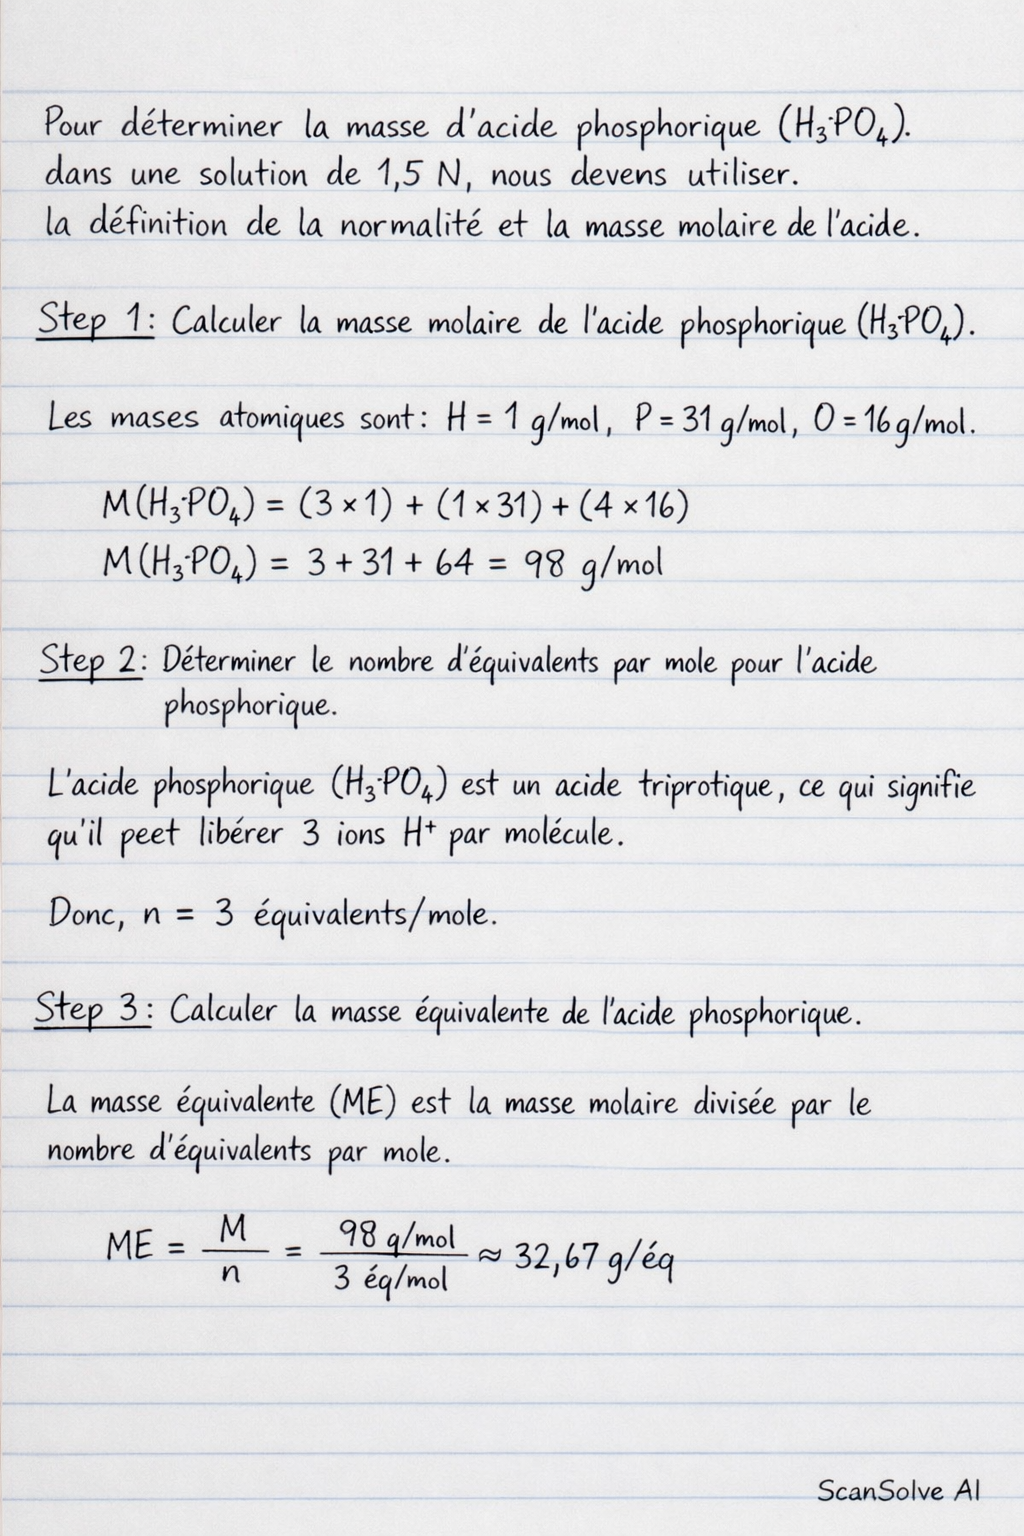 Pour déterminer la masse d'acide phosphorique (H₃PO₄).
dans une solution de 1,5 N, nous devens utiliser.
la définition de la normalité et la masse molaire de l'acide.
Step 1: Calculer la masse molaire de l'acide phosphorique (H₃PO₄).
Les mases atomiques sont: H = 1 g/mol, P = 31 g/mol, O = 16 g/mol.
M(H₃PO₄) = (3 × 1) + (1 × 31) + (4 × 16)
M(H₃PO₄) = 3 + 31 + 64 = 98 g/mol
Step 2: Déterminer le nombre d'équivalents par mole pour l'acide
phosphorique.
L'acide phosphorique (H₃PO₄) est un acide triprotique, ce qui signifie
qu'il peet libérer 3 ions H⁺ par molécule.
Donc, n = 3 équivalents/mole.
Step 3: Calculer la masse équivalente de l'acide phosphorique.
La masse équivalente (ME) est la masse molaire divisée par le
nombre d'équivalents par mole.
ME = M/n = 98 g/mol / 3 éq/mol ≈ 32,67 g/éq
ScanSolve AI